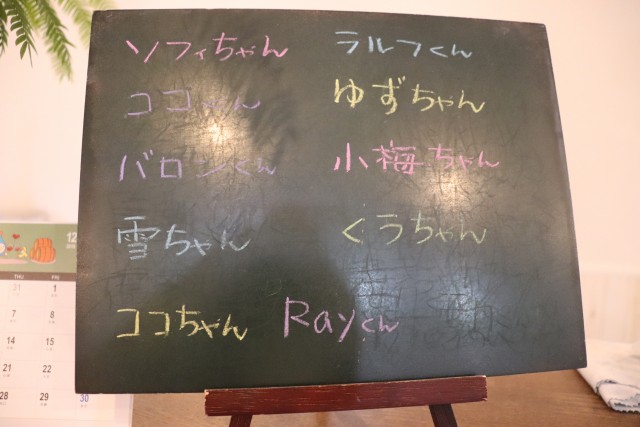 ソフィちゃん ラルフくん
ココくん ゆずちゃん
バロンくん 小梅ちゃん
雪ちゃん くうちゃん
ココちゃん Rayくん
12
THU FRI
1
7 8
14 15
21 22
28 29 30